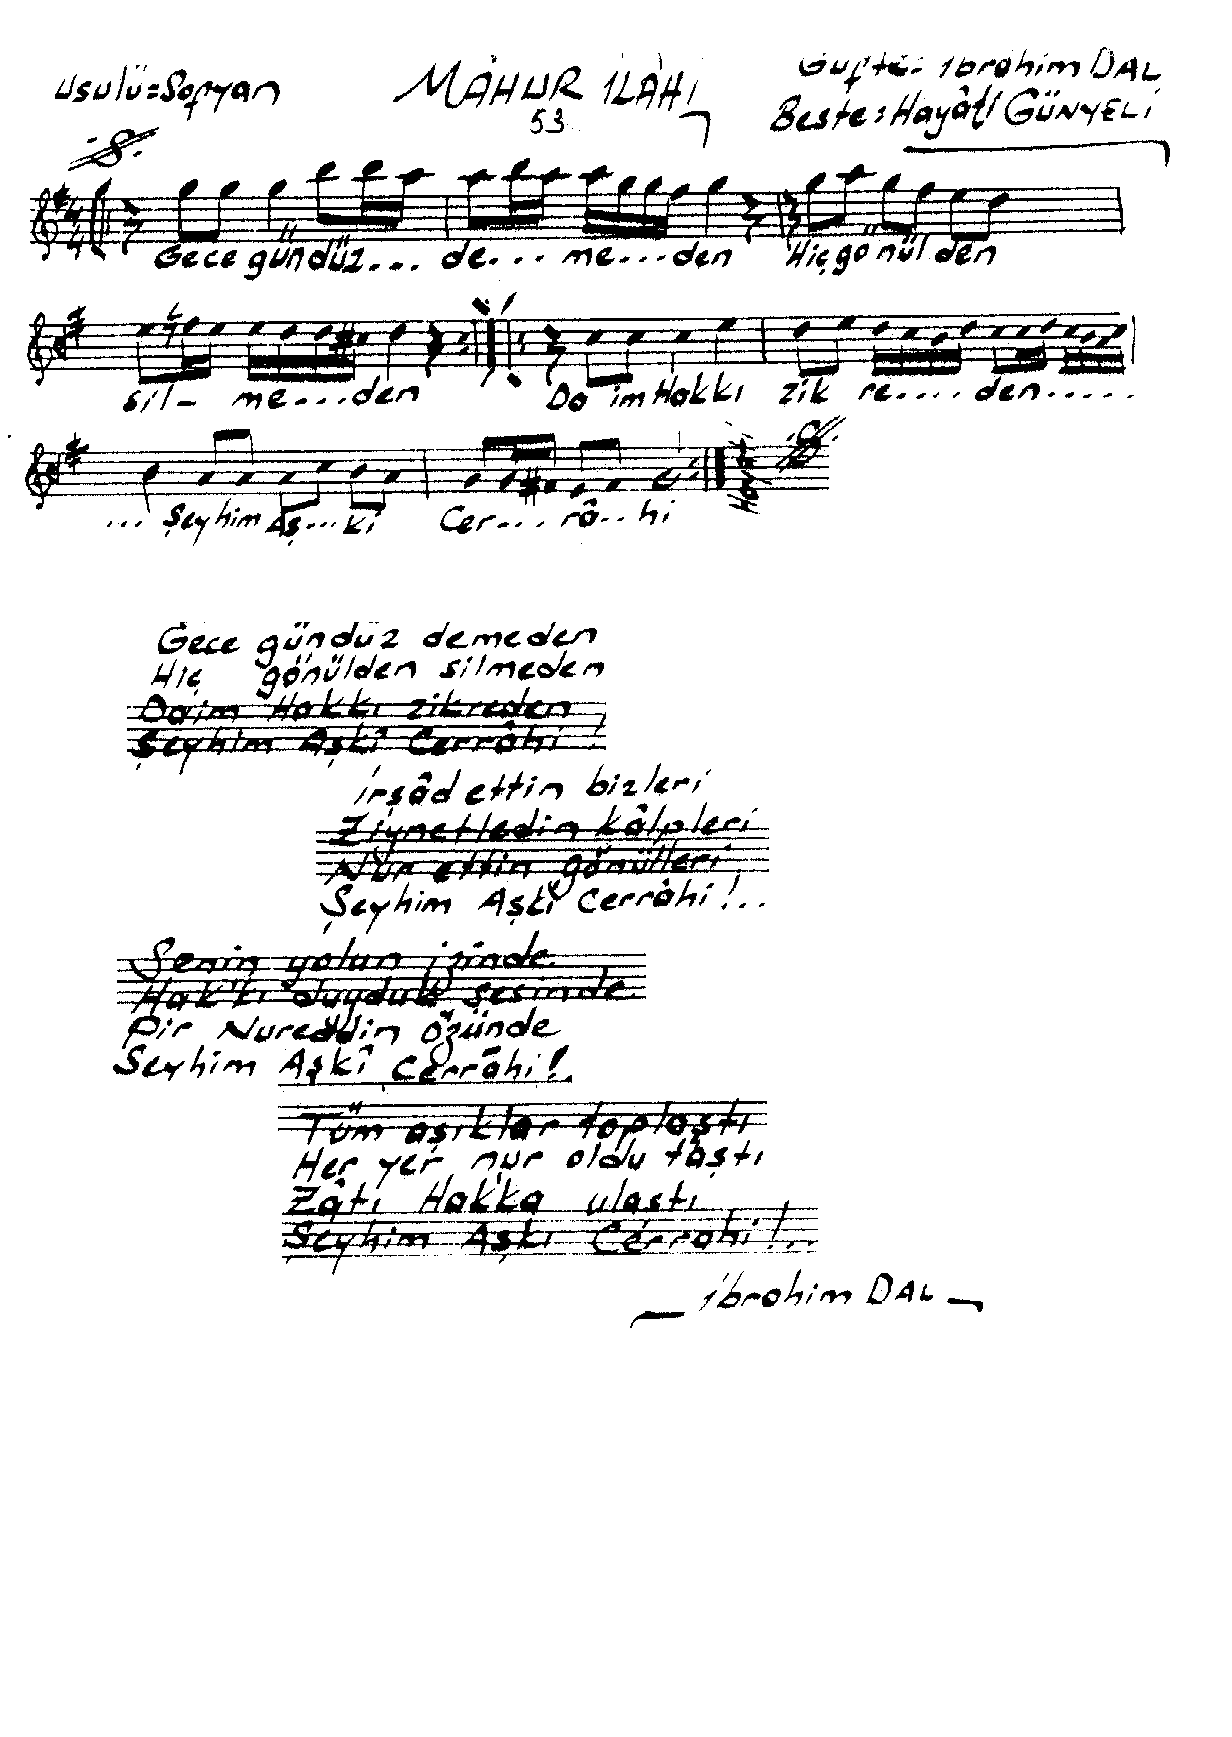 Usulü=Sofyan
MÂHUR İLÂHİ
53
Güfte: İbrahim DAL
Beste: Hayâtî GÜNYELİ
Gece gündüz... de... me...den Hiç gönülden
sil- me...den Daim Hakkı zik re.... den.....
... Şeyhim Aş...kî Cer... râ..hi
Gece gündüz demeden
Hiç gönülden silmeden
Daim Hakkı zikreden
Şeyhim Aşkî Cerrâhi !
İrşâd ettin bizleri
Ziynetledin kâlpleri
Nûr ettin gönülleri
Şeyhim Aşkî Cerrâhi!..
Senin yolun izinde
Hak'kı duyduk sesinde
Pir Nureddin özünde
Şeyhim Aşkî Cerrâhi!.
Tüm aşıklar toplaştı
Her yer nur oldu taştı
Zâtı Hak'ka ulaştı
Şeyhim Aşkı Cerrahi!..
İbrahim DAL